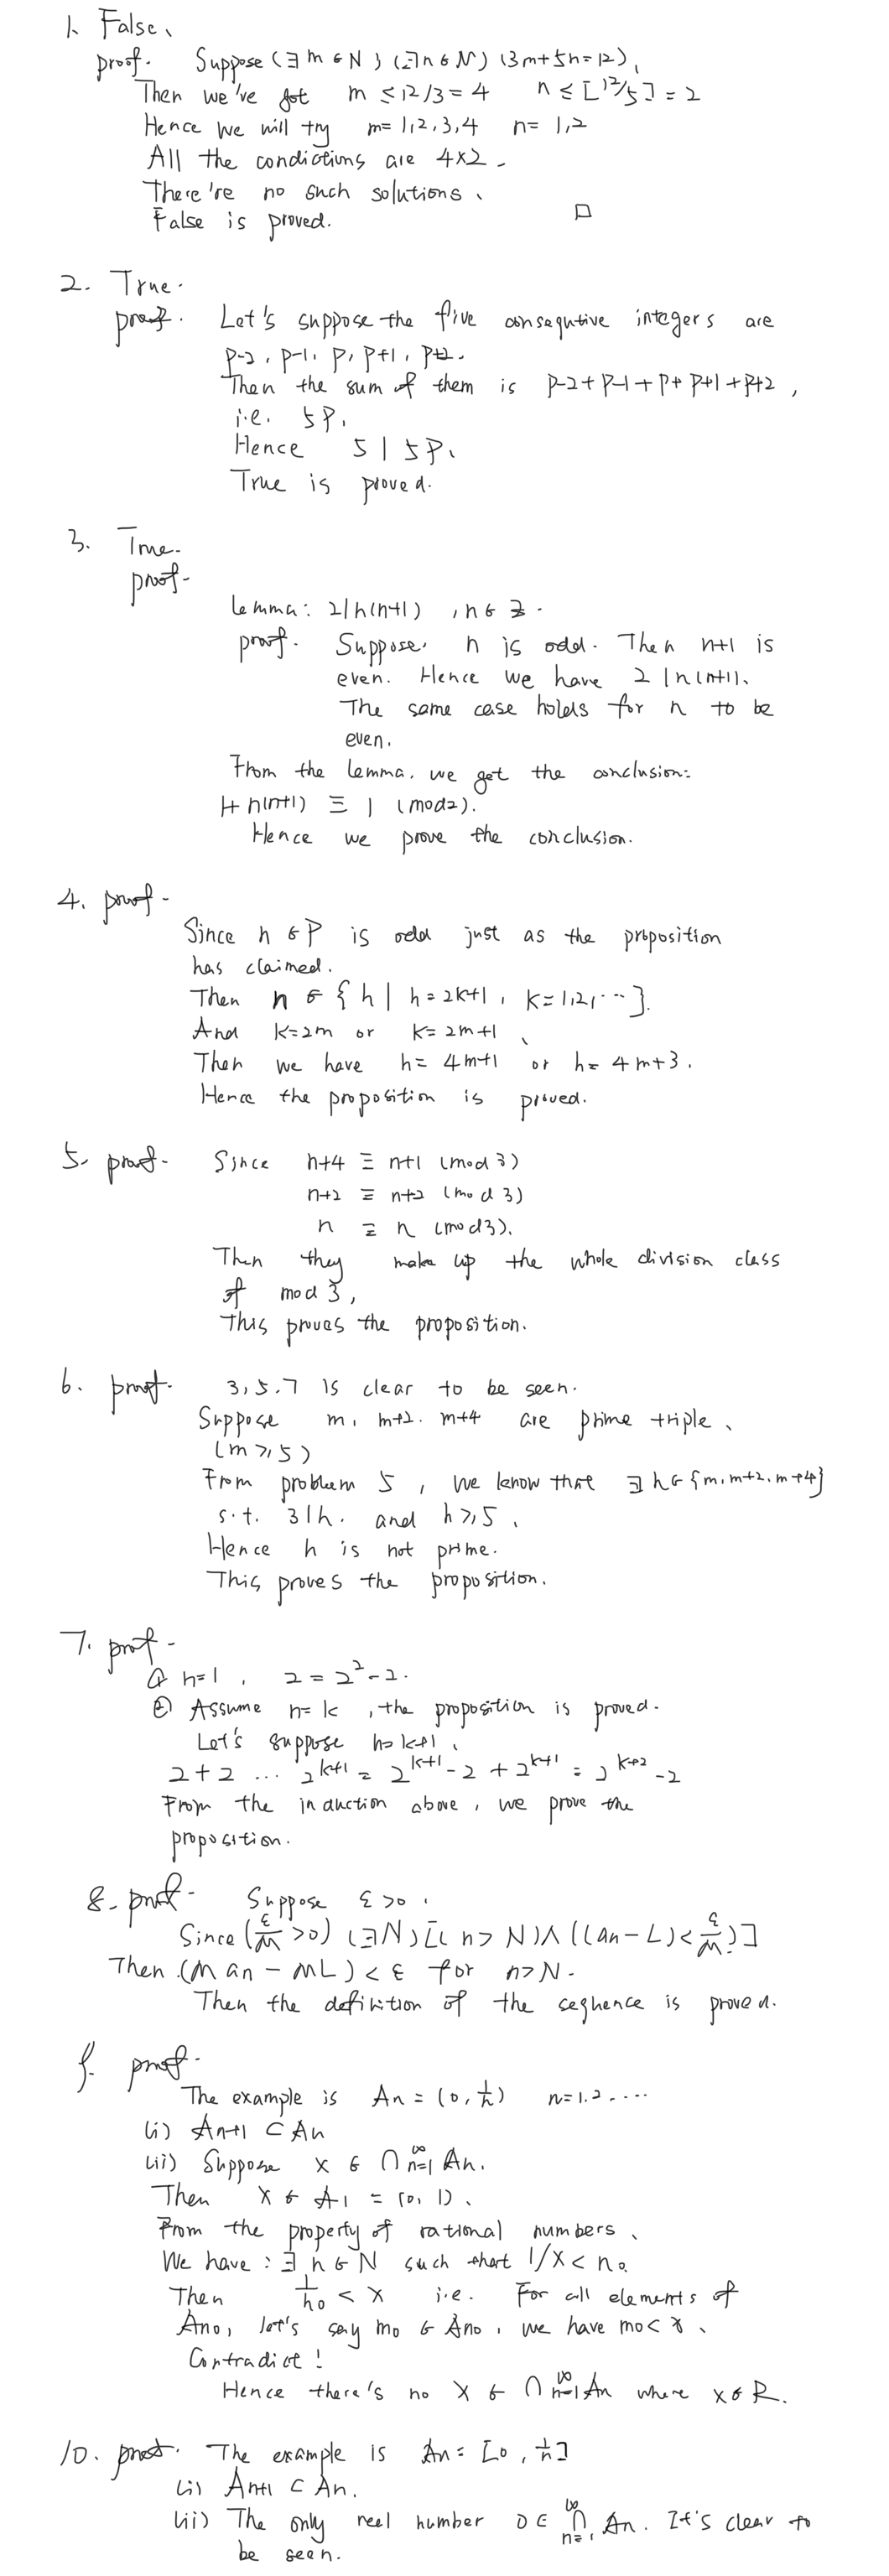 1. False.
proof. Suppose (∃m∈N)(∃n∈N)(3m+5n=12),
Then we've got m ≤ 12/3 = 4 n ≤ [12/5] = 2
Hence we will try m=1,2,3,4 n=1,2
All the condictions are 4×2.
There're no such solutions.
False is proved. □
2. True.
proof. Let's suppose the five consequtive integers are
p-2, p-1, p, p+1, p+2.
Then the sum of them is p-2+p-1+p+p+1+p+2,
i.e. 5p.
Hence 5 | 5p.
True is proved.
3. True.
proof.
Lemma: 2|n(n+1) , n∈Z.
proof. Suppose. n is odd. Then n+1 is
even. Hence we have 2 | n(n+1).
The same case holds for n to be
even.
From the lemma, we get the conclusion:
1+n(n+1) ≡ 1 (mod2).
Hence we prove the conclusion.
4. proof.
Since n∈P is odd just as the proposition
has claimed.
Then n ∈ {n | n=2k+1, k=1,2,...}.
And k=2m or k=2m+1.
Then we have n=4m+1 or n=4m+3.
Hence the proposition is proved.
5. proof. Since n+4 ≡ n+1 (mod 3)
n+2 ≡ n+2 (mod 3)
n ≡ n (mod3).
Then they make up the whole division class
of mod 3,
This proves the proposition.
6. proof. 3,5.7 is clear to be seen.
Suppose m, m+2. m+4 are prime triple.
(m≥5)
From problem 5, we know that ∃n∈{m,m+2.m+4}
s.t. 3|n. and n≥5.
Hence n is not prime.
This proves the proposition.
7. proof.
① n=1, 2=2²-2.
② Assume n=k, the proposition is proved.
Let's suppose n=k+1.
2+2 ... 2^{k+1} = 2^{k+1}-2+2^{k+1} = 2^{k+2}-2
From the induction above, we prove the
proposition.
8. proof. Suppose ε>0.
Since (ε/M >0) (∃N)[(n>N)∧((an-L)<ε/M)]
Then (Man-ML)<ε for n>N.
Then the definition of the seqhence is proved.
9. proof.
The example is An=(0,1/n) n=1.2....
(i) An+1 ⊂ An
(ii) Suppose x ∈ ∩_{n=1}^∞ An.
Then x ∈ A1 = (0,1).
From the property of rational numbers.
We have: ∃n∈N such that 1/x<n0
Then 1/n0 < x i.e. For all elements of
An0, let's say m0∈An0, we have m0<x.
Contradict!
Hence there's no x ∈ ∩_{n=1}^∞ An where x∈R.
10. proof. The example is An=[0,1/n]
(i) An+1 ⊂ An.
(ii) The only reel number 0 ∈ ∩_{n=1}^∞ An. It's clear to
be seen.